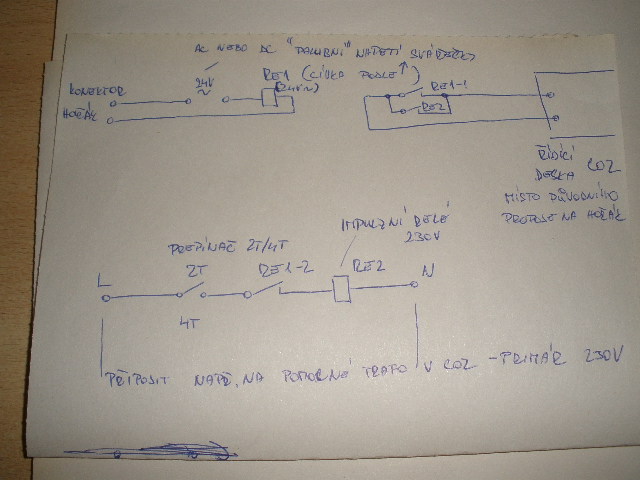 AC NEBO DC "PALUBNÍ" NAPĚTÍ SVÁŘEČKY
KONEKTOR
HOŘÁK
24V
~
RE1 (CÍVKA PODLE ↑)
(24V~)
RE1-1
RE2
ŘÍDÍCÍ
DESKA CO2
MÍSTO PŮVODNÍHO
PROPOJE NA HOŘÁK
IMPULZNÍ RELÉ
230V
PŘEPÍNAČ 2T/4T
L
2T
RE1-2
RE2
N
4T
PŘIPOJIT NAPŘ. NA POMOCNÉ TRAFO V CO2 - PRIMÁR 230V